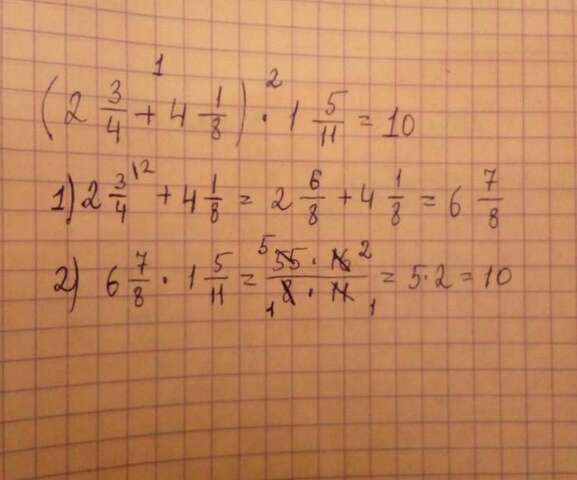 (2 3/4 + 4 1/8) ¹ · ² 1 5/11 = 10
1) 2 3/4 ^12 + 4 1/8 = 2 6/8 + 4 1/8 = 6 7/8
2) 6 7/8 · 1 5/11 = ⁵55 · 16² / ₁8 · 11₁ = 5·2 = 10